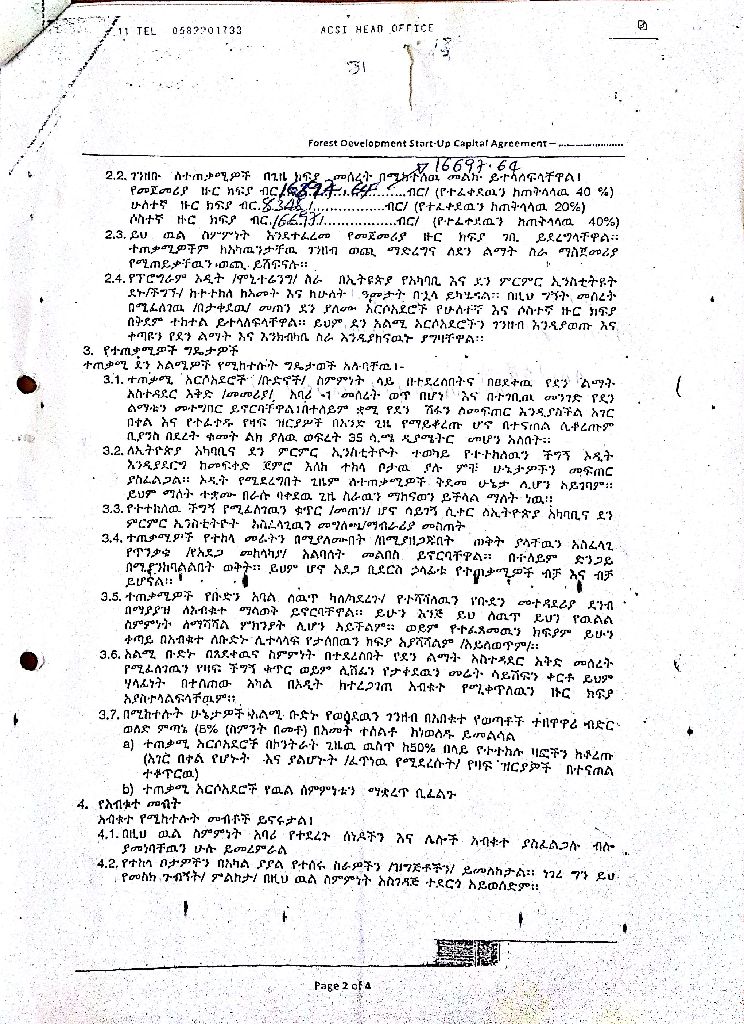 11 TEL 0582201733 ACSI HEAD OFFICE
31
Forest Development Start-Up Capital Agreement –
16697.64
2.2. ገንዘቡ ለተጠቃሚዎች በጊዜ ክፍያ መሰረት በሚከተለዉ መልኩ ይተላለፍላቸዋል፤
የመጀመሪያ ዙር ክፍያ ብር ብር/ (የተፈቀደዉን ከጠቅላላዉ 40 %)
ሁለተኛ ዙር ክፍያ ብር. 8348 ብር/ (የተፈቀደዉን ከጠቅላላዉ 20%)
ሶስተኛ ዙር ክፍያ ብር. ብር/ (የተፈቀደዉን ከጠቅላላዉ 40%)
2.3. ይህ ዉል ስምምነት እንደተፈረመ የመጀመሪያ ዙር ክፍያ ገቢ ይደረግላቸዋል።
ተጠቃሚዎችም ከአካዉንታቸዉ ገንዘብ ወጪ ማድረግና ለደን ልማት ስራ ማስጀመሪያ
የሚጠይቃቸዉን ወጪ ይሸፍናሉ።
2.4. የፕሮግራም ኦዲት /ሞኒተሪንግ/ ስራ በኢትዮጵያ የአካባቢ እና ደን ምርምር ኢንስቲትዩት
ደኑ/ችግኙ/ ከተተከለ ከአመት እና ከሁለት ዓመታት በኋላ ይካሄዳል። በዚህ ግኝት መሰረት
በሚፈለገዉ /በታቀደዉ/ መጠን ደን ያለሙ አርሶአደሮች የሁለተኛ እና ሶስተኛ ዙር ክፍያ
በቅደም ተከተል ይተላለፍላቸዋል። ይህም ደን አልሚ አርሶአደሮችን ገንዘብ እንዲያወጡ እና
ቀጣዩን የደን ልማት እና እንክብካቤ ስራ እንዲያከናዉኑ ያግዛቸዋል።
3. የተጠቃሚዎች ግዴታዎች
ተጠቃሚ ደን አልሚዎች የሚከተሉት ግዴታወች አሉባቸዉ፤-
3.1. ተጠቃሚ አርሶአደሮች /ቡድኖች/ ስምምነት ላይ በተደረሰበትና በፀደቀዉ የደን ልማት
አስተዳደር እቅድ /መመሪያ/ አባሪ -1 መሰረት ወጥ በሆነ እና በተገቢዉ መንገድ የደን
ልማቱን መተግበር ይኖርባቸዋል፤በተለይም ቋሚ የደን ሽፋን ለመፍጠር እንዲያስችል አገር
በቀል እና የተፈቀዱ የዛፍ ዝርያዎች በአንድ ጊዜ የማይቆረጡ ሆኖ በተናጠል ሲቆረጡም
ቢያንስ በደረት ቁመት ልክ ያለዉ ወፍረት 35 ሳ.ሜ ዲያሜትር መሆን አለበት።
3.2. ለኢትዮጵያ አካባቢና ደን ምርምር ኢንስቲትዮት ተወካይ የተተከለዉን ችግኝ ኦዲት
እንዲያደርግ ከመፍቀድ ጀምሮ እስከ ተከላ ቦታዉ ያሉ ምቹ ሁኔታዎችን መፍጠር
ያስፈልጋል። ኦዲት የሚደረግበት ጊዜም ለተጠቃሚዎች ቅድመ ሁኔታ ሊሆን አይገባም።
ይህም ማለት ተቋሙ በራሱ ባቀደዉ ጊዜ ስራዉን ማከናወን ይችላል ማለት ነዉ።
3.3. የተተከለዉ ችግኝ የሚፈለገዉን ቁጥር /መጠን/ ሆኖ ሳይገኝ ሲቀር ለኢትዮጵያ አካባቢና ደን
ምርምር ኢንስቲትዮት አስፈላጊዉን መግለጫ/ማብራሪያ መስጠት
3.4. ተጠቃሚዎች የተከላ መሬትን በሚያለሙበት /በሚያዘጋጁበት ወቅት ያላቸዉን አስፈላጊ
የጥንቃቄ /የአደጋ መከላከያ/ አልባሳት መልበስ ይኖርባቸዋል። በተለይም ድንጋይ
በሚያንከባልልበት ወቅት። ይህም ሆኖ አደጋ ቢደርስ ኃላፊቱ የተጠቃሚዎች ብቻ እና ብቻ
ይሆናል።
3.5. ተጠቃሚዎች የቡድን አባል ለዉጥ ካለ/ከደረጉ/ የተሻሻለዉን የቡድን መተዳደሪያ ደንብ
በማያያዝ ለአብቁተ ማሳወቅ ይኖርባቸዋል። ይሁን እንጅ ይህ ለዉጥ ይህን የዉል
ስምምነት ለማሻሻል ምክንያት ሊሆን አይችልም። ወይም የተፈጸመዉን ክፍያም ይሁን
ቀጣይ በአብቁተ ለቡድኑ ሊተላለፍ የታሰበዉን ክፍያ አያሻሽልም /አይለወጥም/።
3.6. አልሚ ቡድኑ በጸደቀዉና ስምምነት በተደረሰበት የደን ልማት አስተዳደር እቅድ መሰረት
የሚፈለገዉን የዛፍ ችግኝ ቁጥር ወይም ሊሸፈን የታቀደዉን መሬት ሳይሸፍን ቀርቶ ይህም
ሃላፊነት በተሰጠው አካል በኦዲት ከተረጋገጠ አብቁተ የሚቀጥለዉን ዙር ክፍያ
አያስተላልፍላቸዉም።
3.7. በሚከተሉት ሁኔታዎች አልሚ ቡድኑ የወሰደዉን ገንዘብ በአበቁተ የወጣቶች ተዘዋዋሪ ብድር
ወለድ ምጣኔ (8% (ስምንት በመቶ) በአመት ተሰልቶ ከነወለዱ ይመልሳል
a) ተጠቃሚ አርሶአደሮች በኮንትራት ጊዜዉ ዉስጥ ከ50% በላይ የተተከሉ ዛፎችን ከቆረጡ
(አገር በቀል የሆኑት እና ያልሆኑት /ፈጥነዉ የሚደረሱት/ የዛፍ ዝርያዎች በተናጠል
ተቆጥርዉ)
b) ተጠቃሚ አርሶአደሮች የዉል ስምምነቱን ማቋረጥ ቢፈልጉ
4. የአብቁተ መብት
አብቁተ የሚከተሉት መብቶች ይኖሩታል፤
4.1. በዚህ ዉል ስምምነት አባሪ የተደረጉ ሰነዶችን እና ሌሎች አብቁተ ያስፈልጋሉ ብሎ
ያመነባቸዉን ሁሉ ይመረምራል
4.2. የተከላ ቦታዎችን በአካል ያያል የተሰሩ ስራዎችን /ዝግጅቶችን/ ይመለከታል። ነገረ ግን ይህ
የመስክ ጉብኝት/ ምልከታ/ በዚህ ዉል ስምምነት አስገዳጅ ተደርጎ አይወሰድም።
Page 2 of 4